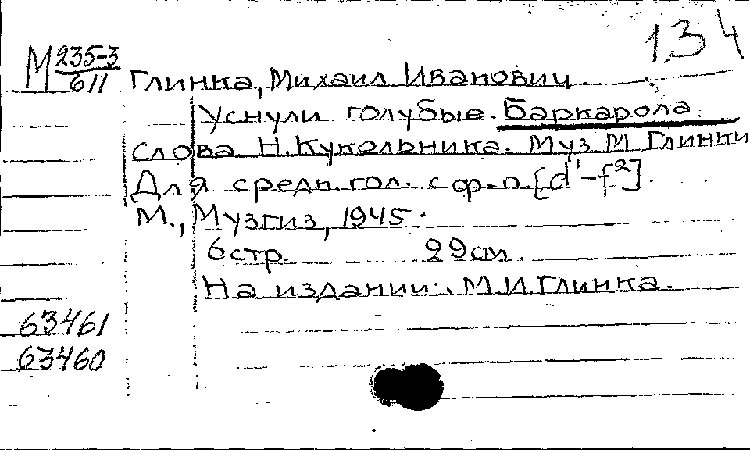 134
М 235-3/611
Глинка, Михаил Иванович
Уснули голубые. Баркарола.
Слова Н. Кукольника. Муз. М. Глинки
Для средн. гол. с ф.-п. [d¹-f²].
М., Музгиз, 1945.
6 стр. 29 см.
На издании: М.И. Глинка.
63461
63460